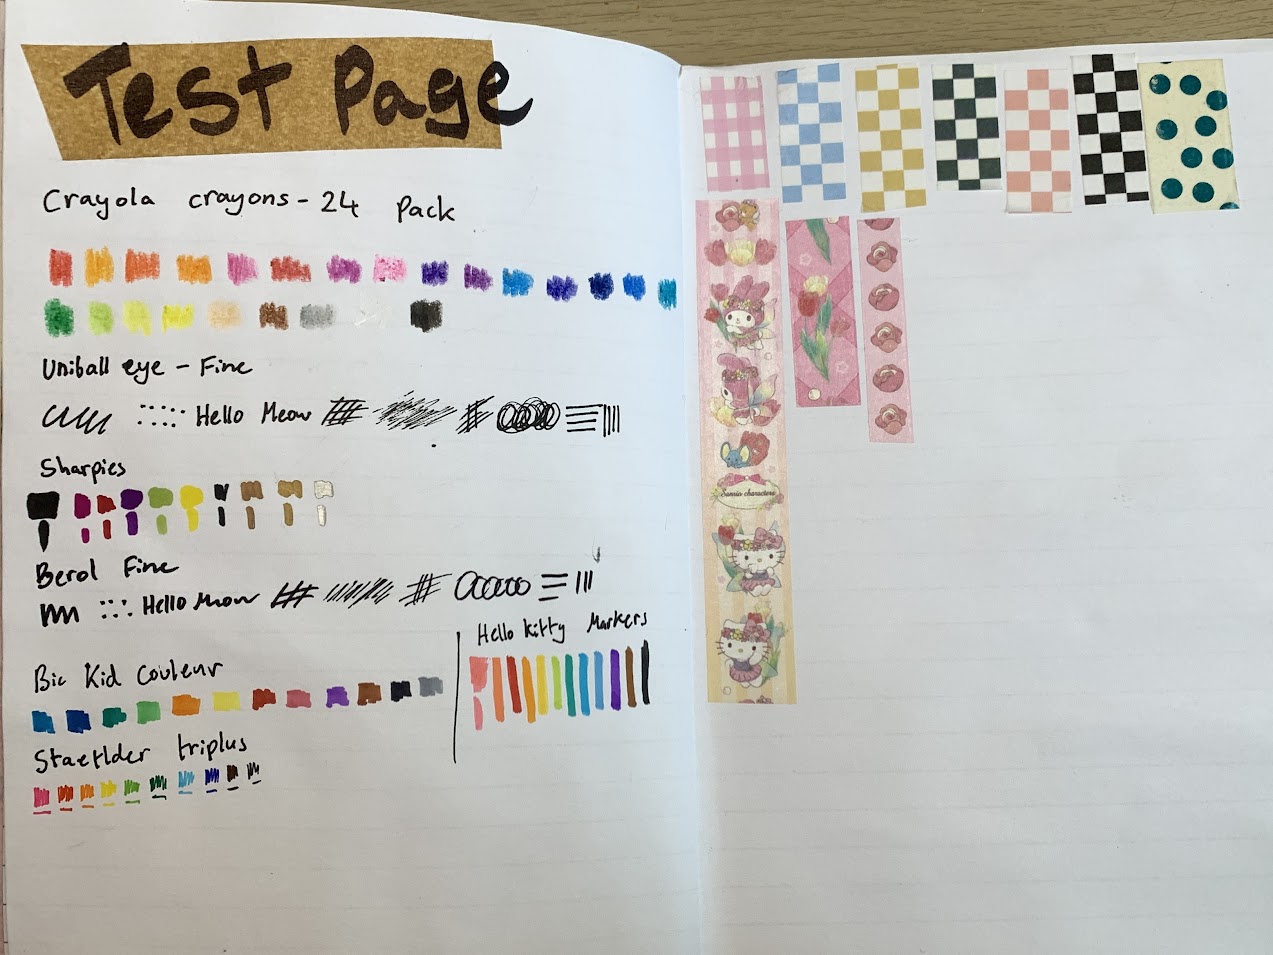 Test Page
Crayola crayons - 24 Pack
Uniball eye - Fine
Hello Meow
Sharpies
Berol Fine
Hello Meow
Hello Kitty Markers
Bic Kid Couleur
Staetlder triplus
Sanrio characters